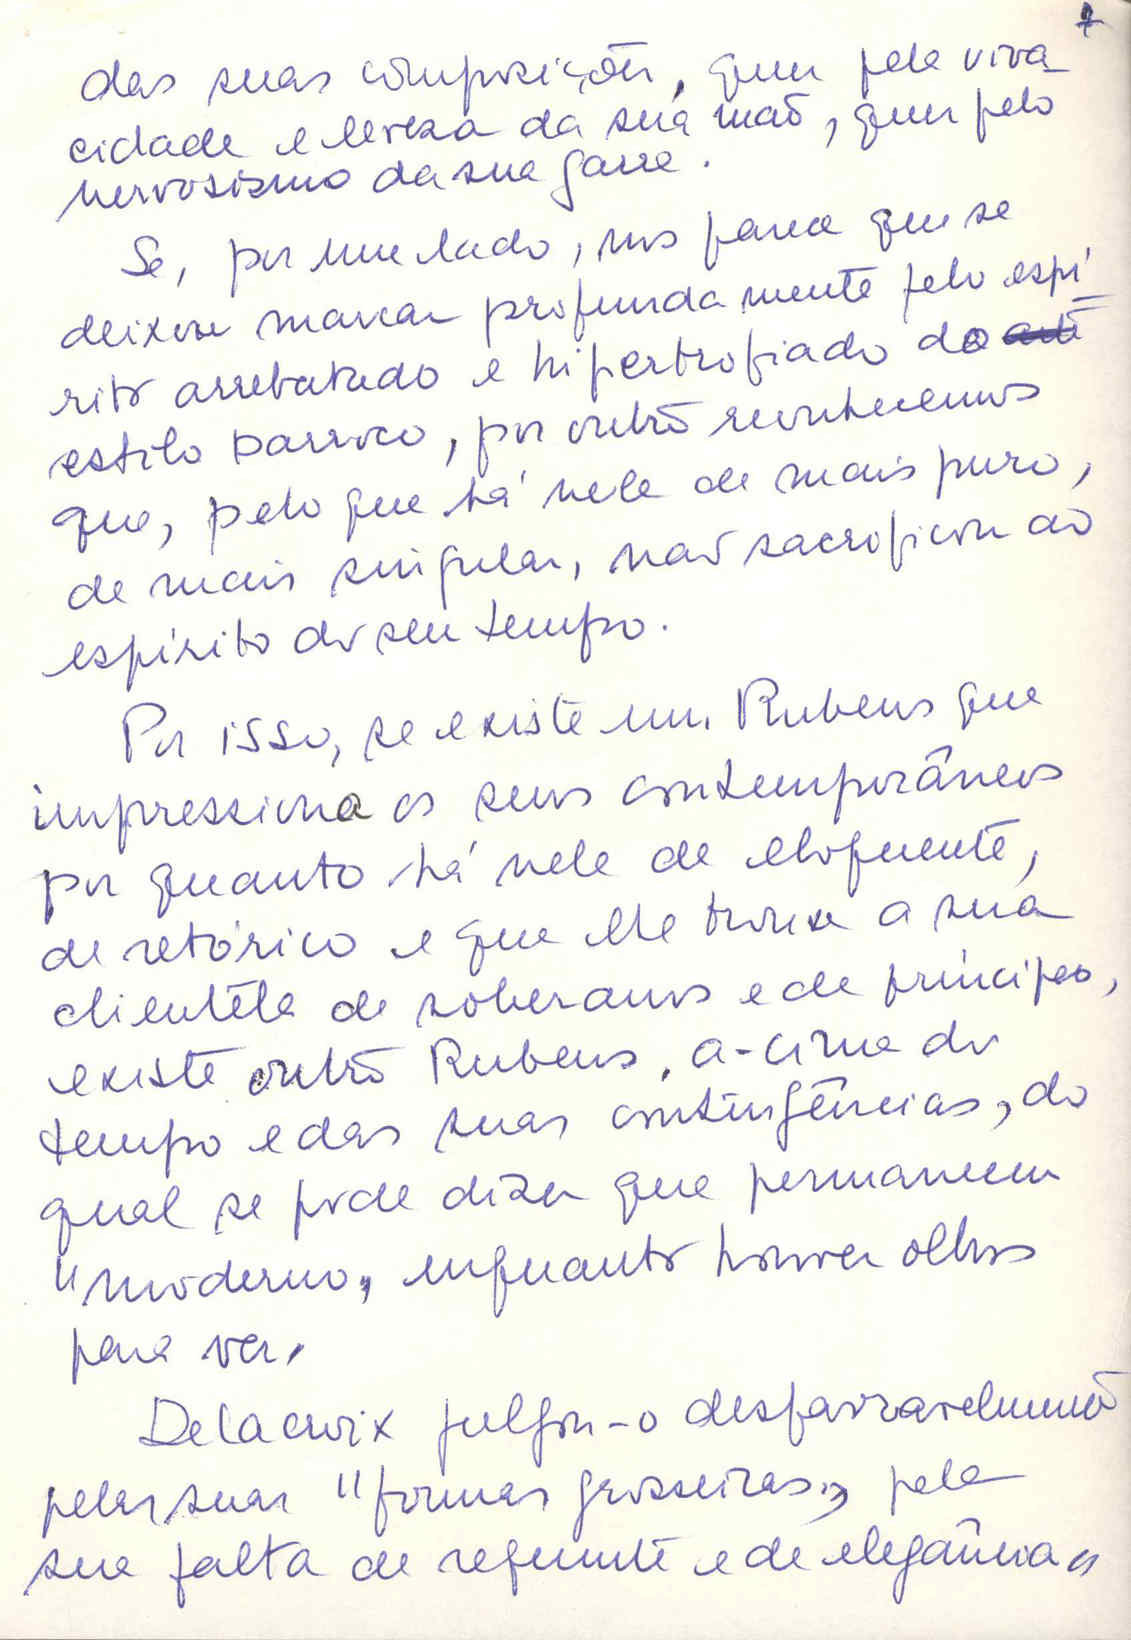 7
das suas composições, quer pela viva-
cidade e leveza da sua mão, quer pelo
nervosismo da sua garra.
Se, por um lado, nos parece que se
deixou marcar profundamente pelo espí-
rito arrebatado e hipertrofiado do arte
estilo barroco, por outro reconhecemos
que, pelo que há nele de mais puro,
de mais singular, não sacrificou ao
espírito do seu tempo.
Por isso, se existe um Rubens que
impressiona os seus contemporâneos
por quanto há nele de eloquente,
de retórico e que lhe trouxe a sua
clientela de soberanos e de príncipes,
existe outro Rubens, a-cima do
tempo e das suas contingências, do
qual se pode dizer que permanecerá
"moderno„ enquanto houver olhos
para ver.
Delacroix julgou-o desfavoravelmente
pelas suas "formas grosseiras„, pela
sua falta de requinte e de elegância